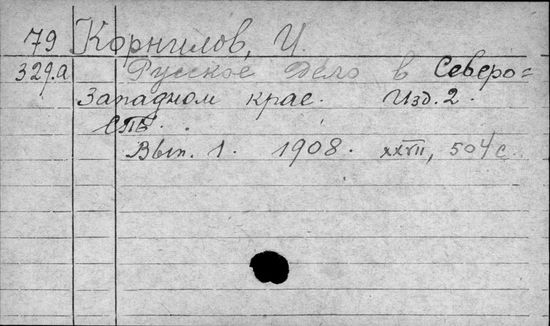 79 Корнилов, И.
329.а Русское дело в Северо=
Западном крае. Изд. 2.
СПб.
Вып. 1. 1908. XXVII, 504 с.